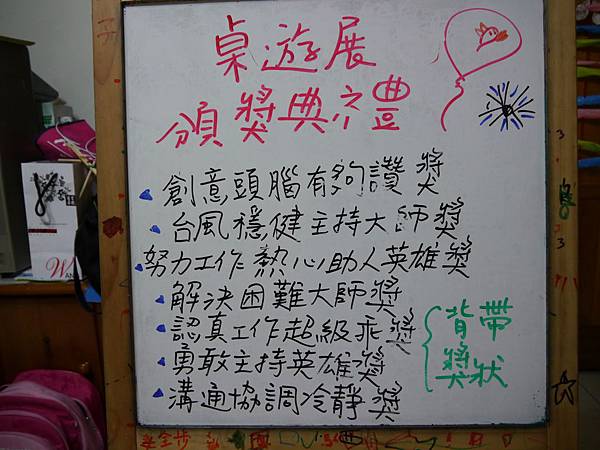 桌遊展
頒獎典禮
創意頭腦有夠讚獎
台風穩健主持大師獎
努力工作熱心助人英雄獎
解決困難大師獎
認真工作超級乖獎
勇敢主持英雄獎
溝通協調冷靜獎
背帶
獎狀